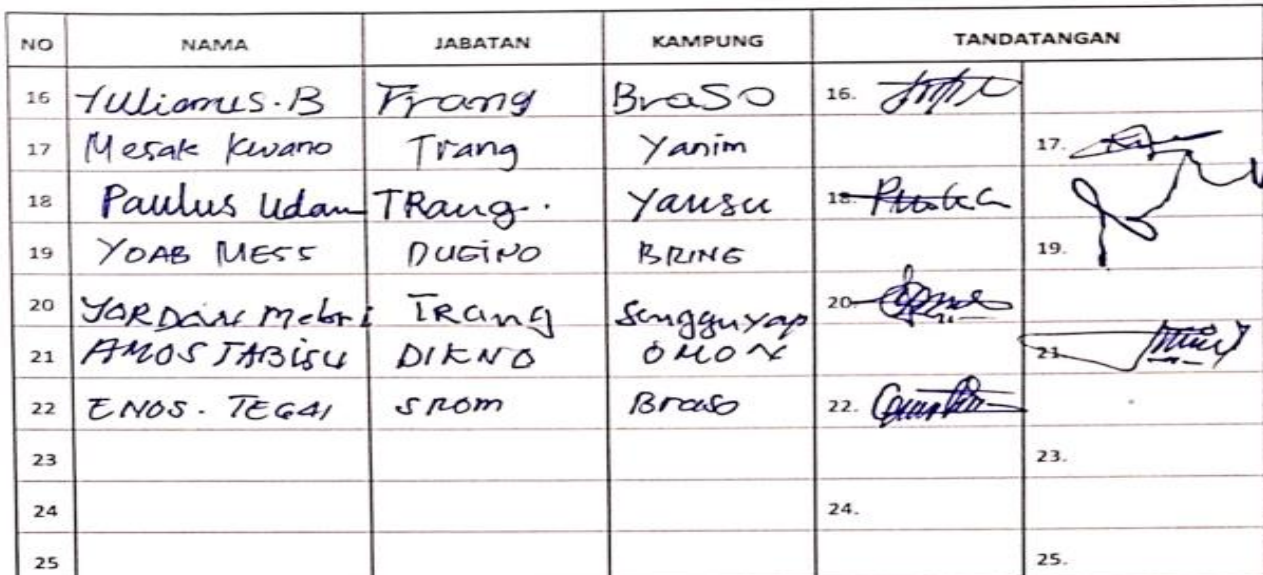 NO NAMA JABATAN KAMPUNG TANDATANGAN
16 Yulianus.B Trang BraSO 16.
17 Mesak Kwano Trang Yanim 17.
18 Paulus Udam TRang. Yansu 18.
19 YOAB MESS DUGINO BRING 19.
20 YORDAN Mebri TRang Sengguyap 20
21 AMOS TABISU DIKNO OMON 21
22 ENOS. TEGAI SROM Braso 22.
23 23.
24 24.
25 25.